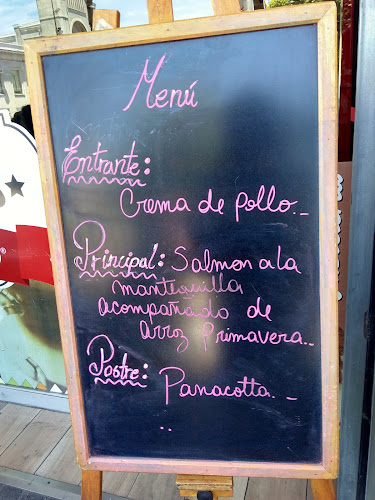 Menú
Entrante:
Crema de pollo.
Principal: Salmon a la
mantequilla
acompañado de
arroz primavera..
Postre:
Panacotta.